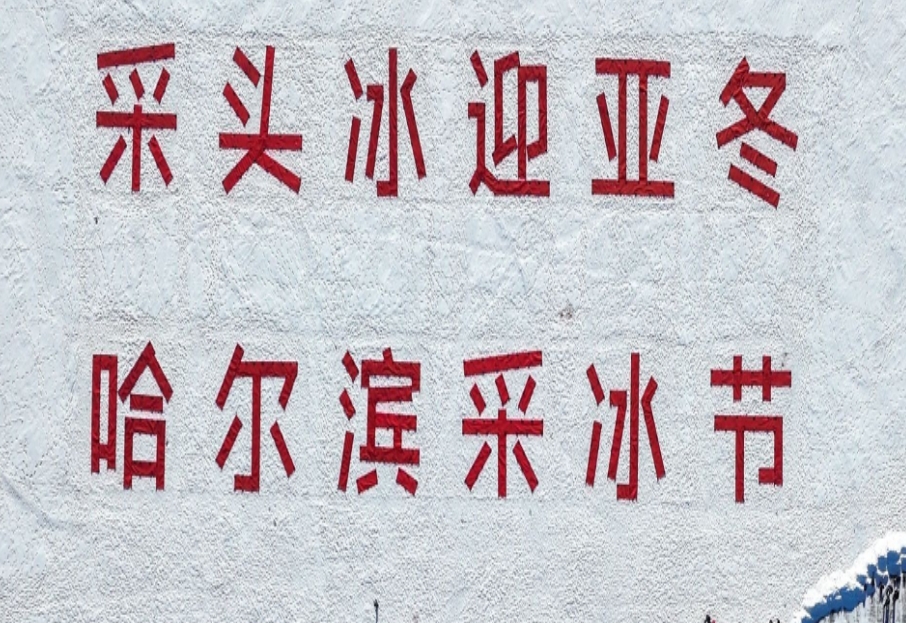 采头冰迎亚冬
哈尔滨采冰节